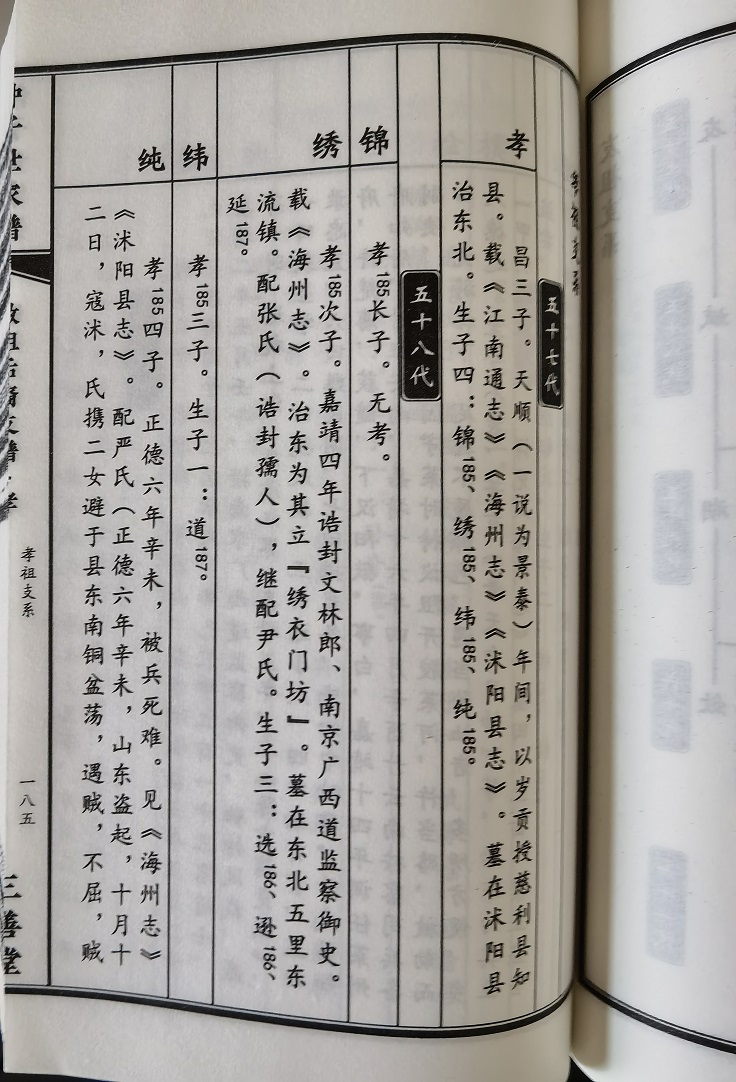 五十七代
孝
昌三子。天顺（一说为景泰）年间，以岁贡授慈利县知
县。载《江南通志》《海州志》《沭阳县志》。墓在沭阳县
治东北。生子四：锦185、绣185、纬185、纯185。
五十八代
锦
孝185长子。无考。
绣
孝185次子。嘉靖四年诰封文林郎、南京广西道监察御史。
载《海州志》。治东为其立『绣衣门坊』。墓在东北五里东
流镇。配张氏（诰封孺人），继配尹氏。生子三：选186、逊186、
延187。
纬
孝185三子。生子一：道187。
纯
孝185四子。正德六年辛未，被兵死难。见《海州志》
《沭阳县志》。配严氏（正德六年辛未，山东盗起，十月十
二日，寇沭，氏携二女避于县东南铜盆荡，遇贼，不屈，贼
孝祖支系
一八五
三善堂